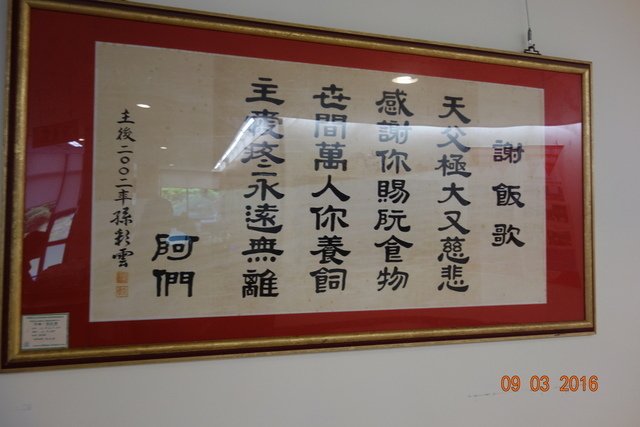 謝飯歌
天父極大又慈悲
感謝你賜阮食物
世間萬人你養飼
主愛疼永遠無離
阿們
主後二〇〇二年孫彩雲
09 03 2016